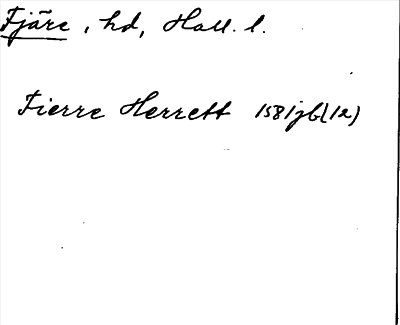 Fjäre, hd, Hall. l.
Fierre Herrett 1581 jb (12)